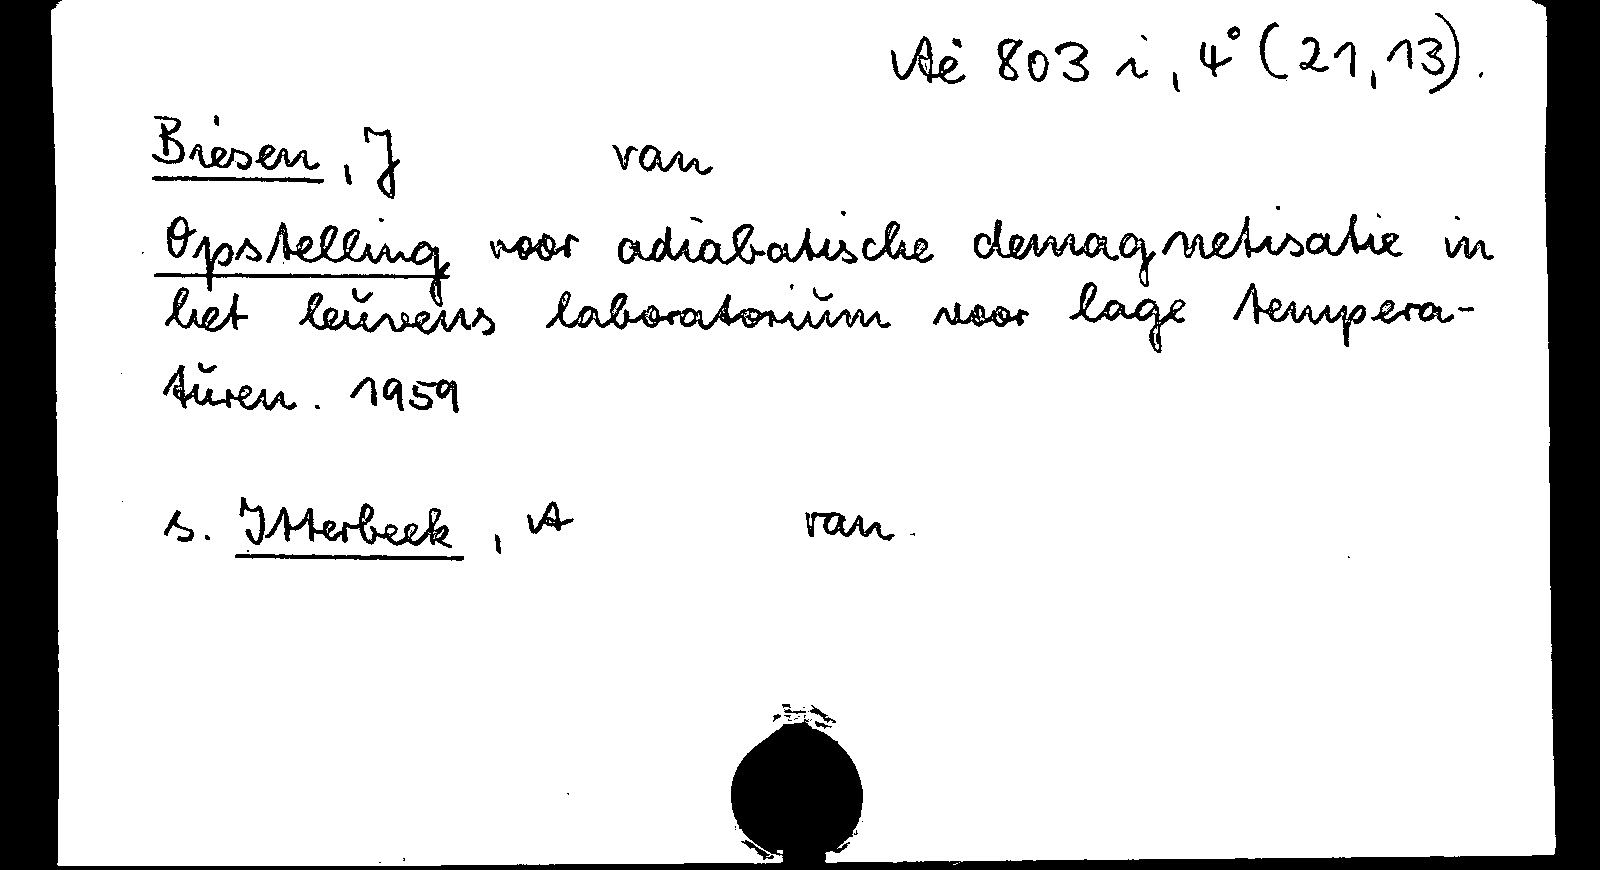 Aë 803 i, 4° (21,13).
Biesen, J van
Opstelling voor adiabatische demagnetisatie in
het leuvens laboratorium voor lage tempera-
turen. 1959
s. Itterbeek, A van